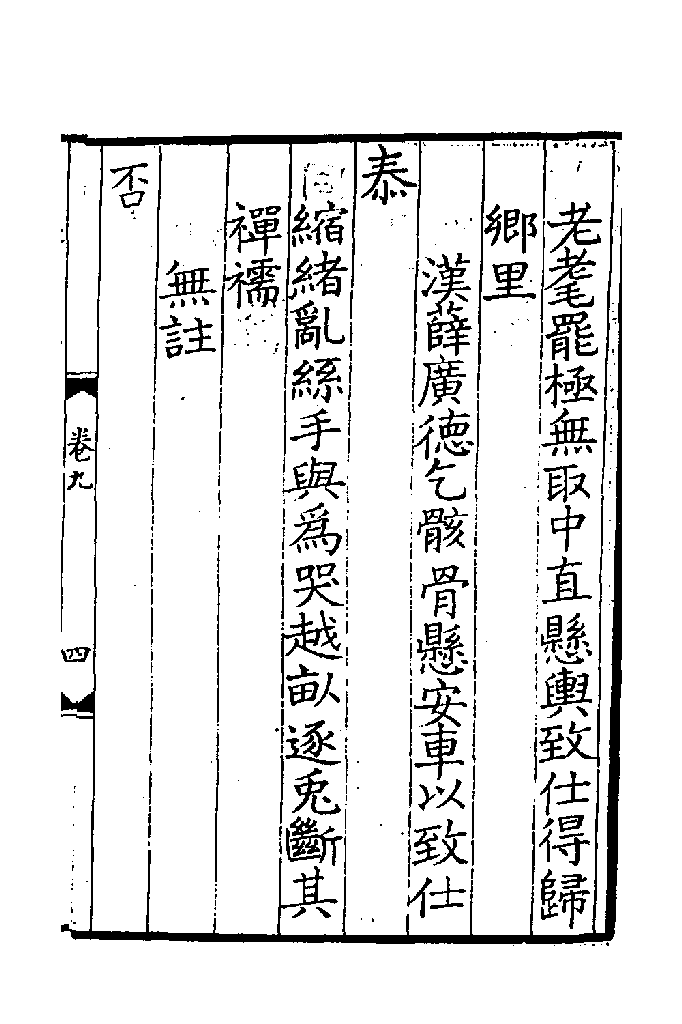 老耄罷極無取中直懸輿致仕得歸
鄉里
漢薛廣德乞骸骨懸安車以致仕
泰
縮緒亂絲手與為哭越畝逐兎斷其
襌襦
無註
否
卷九
四